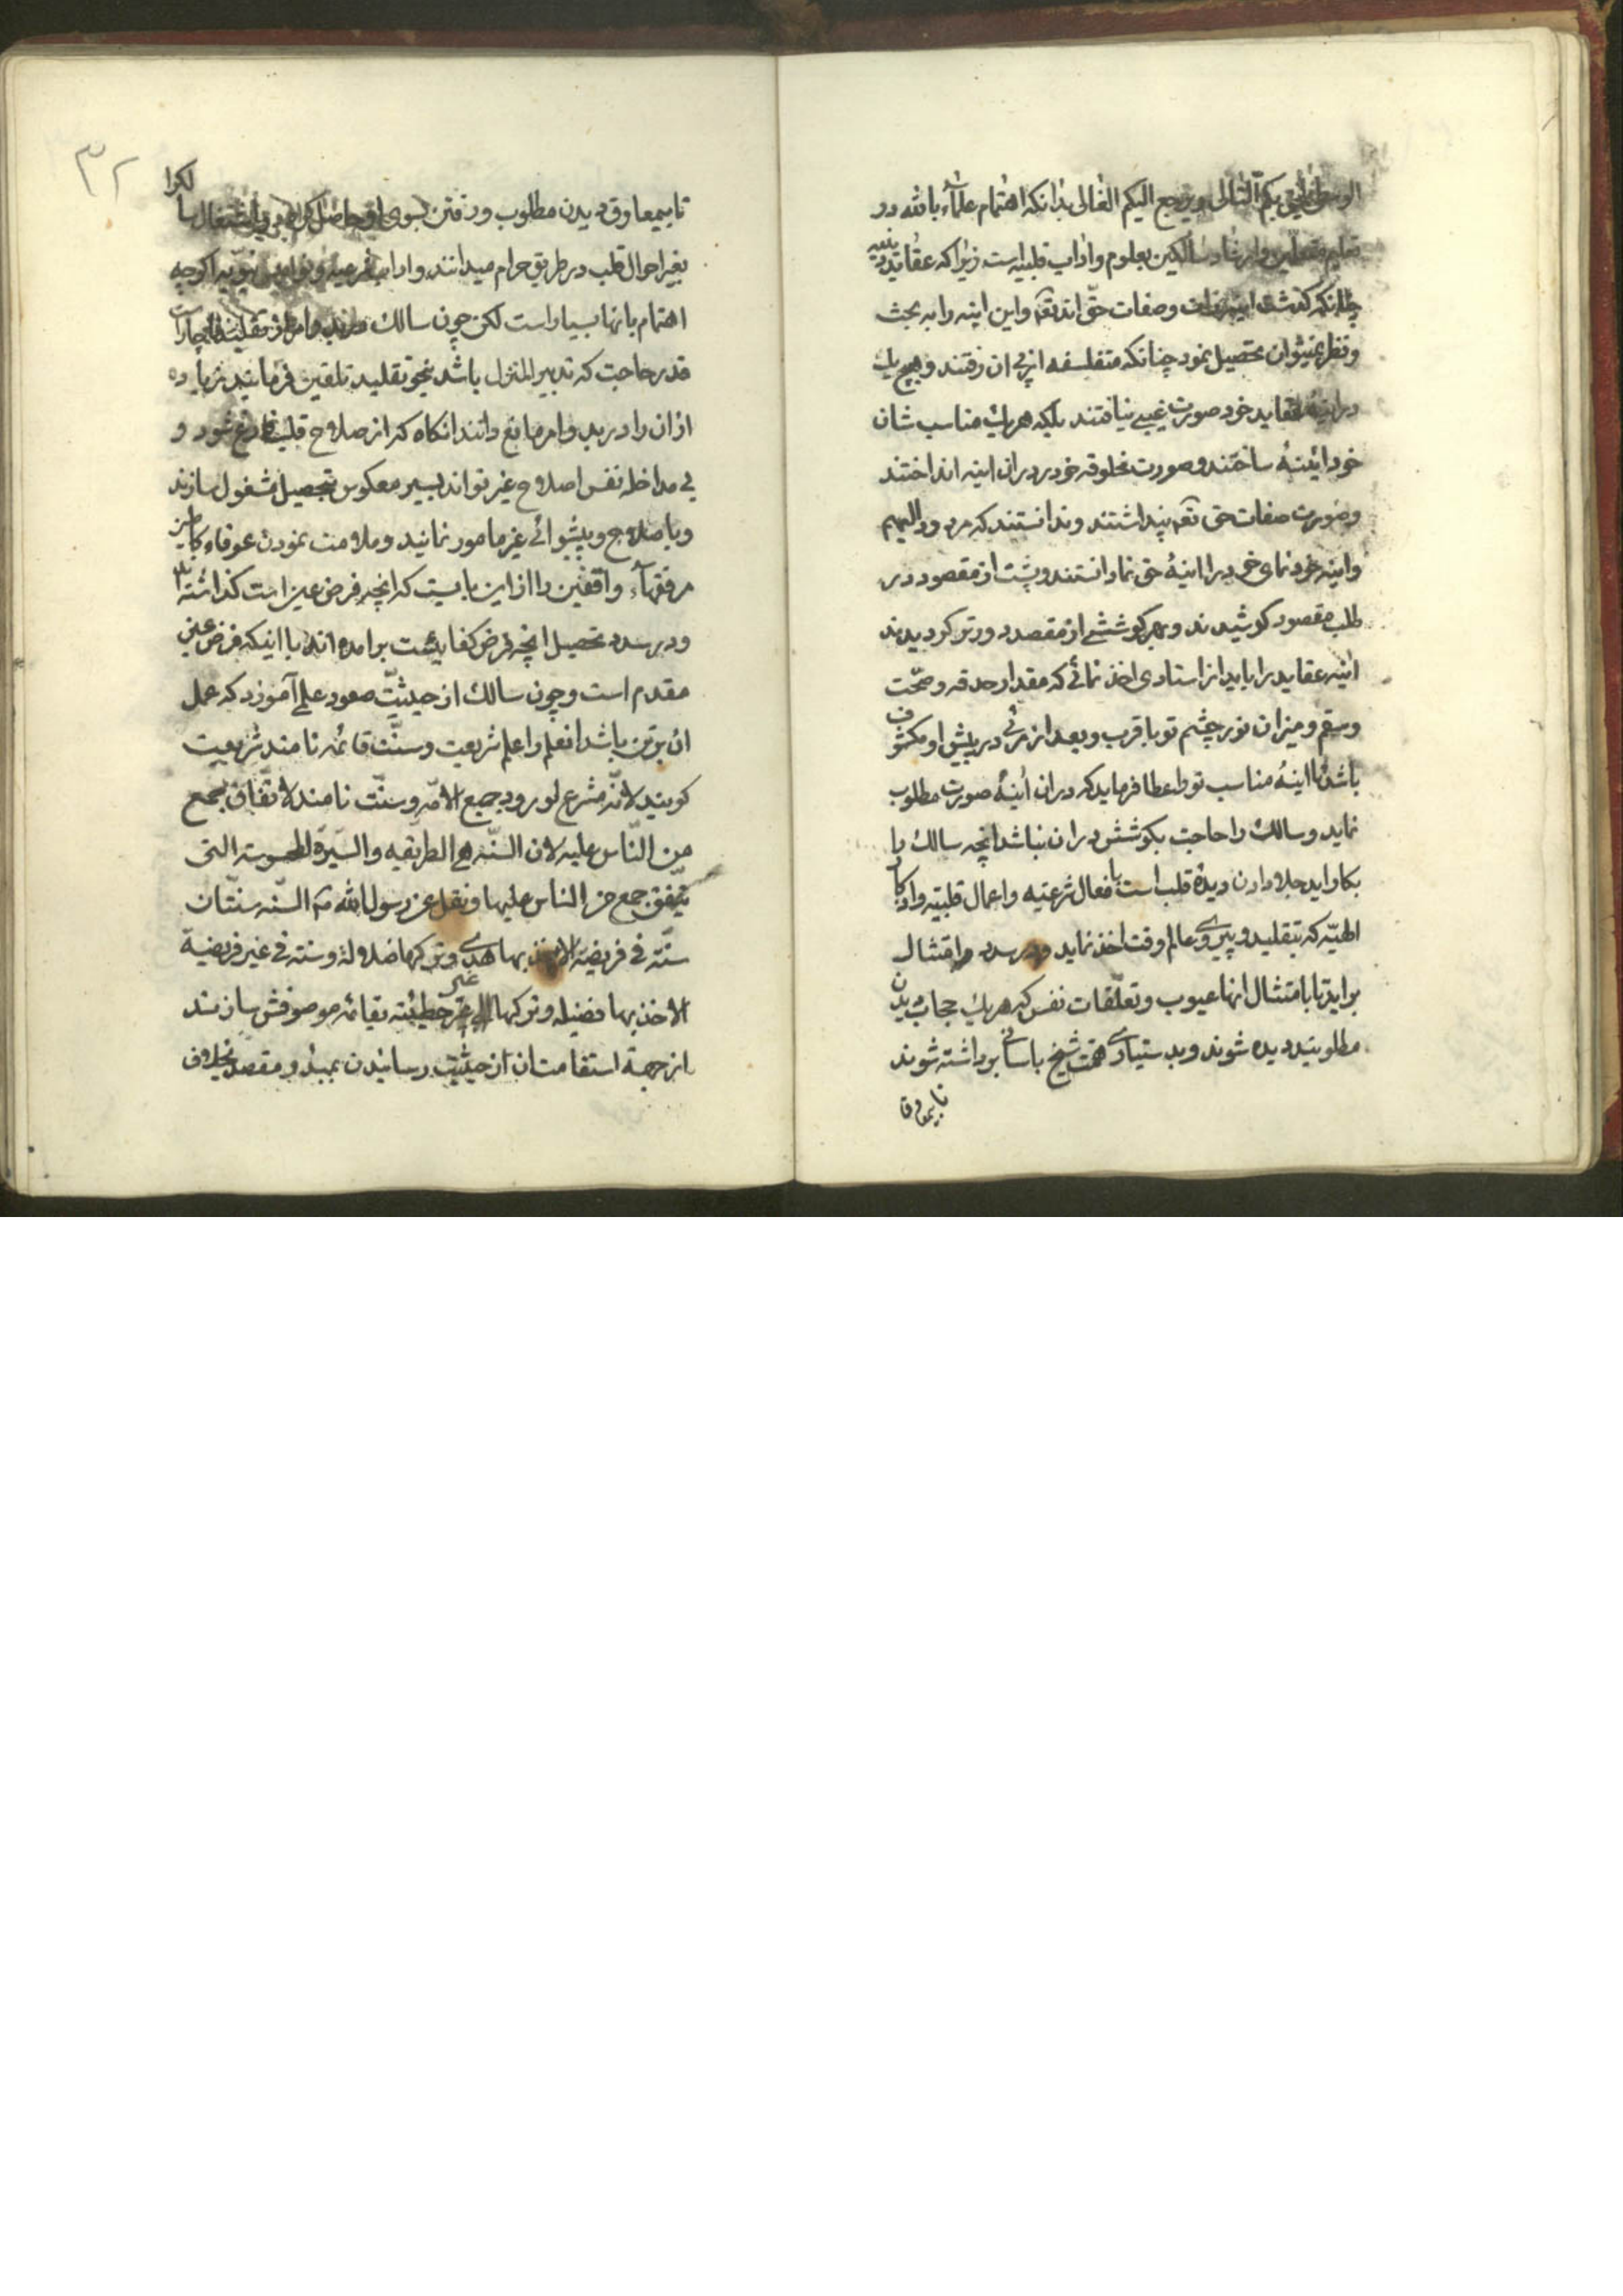 الوسطی یلحق بکم التالی و یرجع الیکم الغالی بدانکه اهتمام علماء بالله در
تعلیم متعلمین و ارشاد سالکین بعلوم و اداب قلبیه است زیرا که عقاید دینیه
چنانکه گذشت اینه ذات و صفات حق اند تعم و این اینه را به بحث
و نظر نمیتوان تحصیل نمود چنانکه متفلسفه از پی ان رفتند و هیچ یك
در اینه عقاید خود صورت غیبی نیافتند بلکه هر یك مناسب شان
خود ائینهٔ ساختند و صورت مخلوقه خود در ان اینه انداختند
و صورت صفات حق تعم پنداشتند و ندانستند که مردود الیهم
و اینه خود نمای خود را اینهٔ حق نما دانستند و پشت از مقصود در
طلب مقصود کوشیدند و بهر کوششی از مقصد دورتر کردیدند
اینه عقاید را باید از استادی اخذ نمائی که مقدار حدقه و صحّت
و سقم و میزان نور چشم تو با قرب و بعد از مرئی در پیش او مکشوف
باشد تا اینهٔ مناسب تو را عطا فرماید که در ان اینهٔ صورت مطلوب
نماید و سالك را حاجت بکوشش در ان نباشد انچه سالك را
بکار اید جلا دادن دیدهٔ قلب است بافعال شرعیه و اعمال قلبیه و اذکار
الهیّه که بتقلید و پیروی عالم وقت اخذ نماید و در سدد امتثال
براید تا بامتثال انها عیوب و تعلّقات نفس که هر یك حجاب دیدن
مطلوبند دیده شوند و بدستیاری همت شیخ باسانی برداشته شوند
تا بیمعاوق
۳۲
تا بیمعاوق دیدن مطلوب و رفتن بسوی او حاصل کردد و اشتغال سالکرا
بغیر احوال قلب در طریق حرام میدانند و اداب فرعیه و نوامیس نبویه اکرچه
اهتمام بانها بسیار است لکن چون سالك
قدر حاجت که تدبیر المنزل باشد بنحو تقلید تلقین فرمایند زیاده
از ان را در بدو امر مانع دانند انکاه که از صلاح قلب فارغ شود و
بی مداخله نفس اصلاح غیر تواند بسیر معکوس بتحصیل مشغول سازند
و باصلاح و پیشوائی غیر مامور نمایند و ملامت نمودن عرفاء کاملین
مر فقهاء واقفین را از این بابست که انچه فرض عین است کذاشته اند
و در سدد تحصیل انچه فرض کفایتست برامده اند با اینکه فرض عین
مقدم است و چون سالك از حیثیّت صعود علمی آموزد که عمل
ان بر تن باشد انعلم را علم شریعت و سنّت قائمه نامند شریعت
کویند لانّه مشرع لورود جمیع الامّه و سنّت نامند لاتّفاق جمع
من النّاس علیه لان السّنّه هی الطریقه و السّیرة المحسوسة التی
یتّفق جمع من الناس علیها و نقل عن رسول الله ص السّنّه سنّتان
سنّه فی فریضة الاخذ بها هدی و ترکها ضلالة و سنته فی غیر فریضیة
الاخذ بها فضیله و ترکها الی غیر خطیئته بقائمه موصوفش سازند
از جهة استقامت ان از حیثیّت رسانیدن بمبدء و مقصد بخلاف